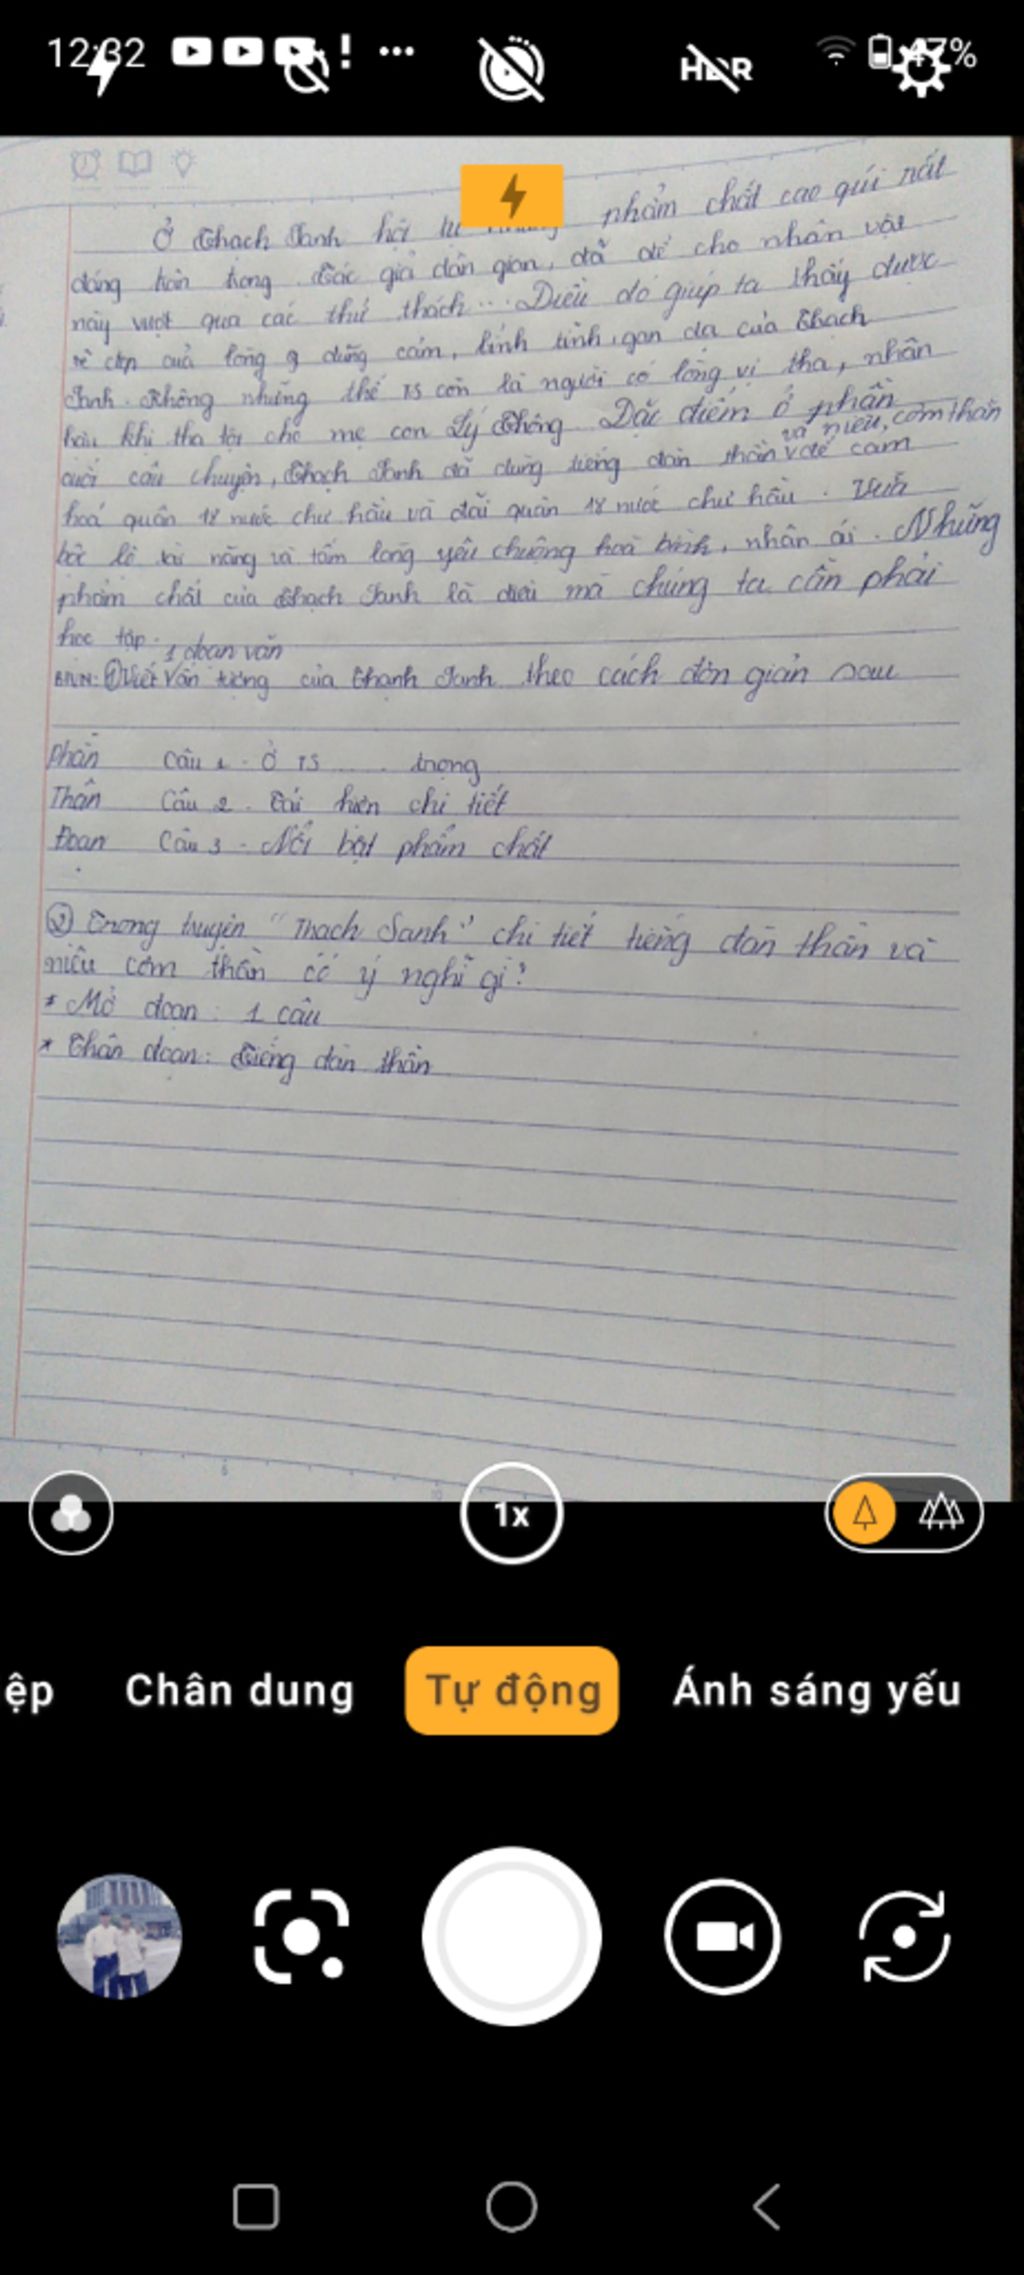 12:32
47%
HDR
Ở Thạch Sanh hội tụ những phẩm chất cao quí rất
đáng trân trọng. Tác giả dân gian, đã để cho nhân vật
này vượt qua các thử thách... Điều đó giúp ta thấy được
vẻ đẹp của lòng dũng cảm, tính tình, gan dạ của Thạch
Sanh. Không những thế TS còn là người có lòng vị tha, nhân
hậu khi tha tội cho mẹ con Lý Thông. Đặc điểm ở phần
và niêu, cơm thần
cuối câu chuyện, Thạch Sanh đã dùng tiếng đàn thần V để cảm
hoá quân 18 nước chư hầu và đãi quân 18 nước chư hầu. Vừa
bộc lộ tài năng và tấm lòng yêu chuộng hoà bình, nhân ái. Những
phẩm chất của Thạch Sanh là điều mà chúng ta cần phải
học tập.
1 đoạn văn
BTVN: ① Viết Văn tưởng của Thạnh Sanh theo cách đơn giản sau
Phần Câu 1. Ở TS .... trọng
Thân Câu 2. Tái hiện chi tiết
Đoạn Câu 3 - Nổi bật phẩm chất
② Trong truyện "Thạch Sanh" chi tiết tiếng đàn thần và
niêu cơm thần có ý nghĩ gì?
* Mở đoạn: 1 câu
* Thân đoạn: Tiếng đàn thần
1x
ệp Chân dung Tự động Ánh sáng yếu